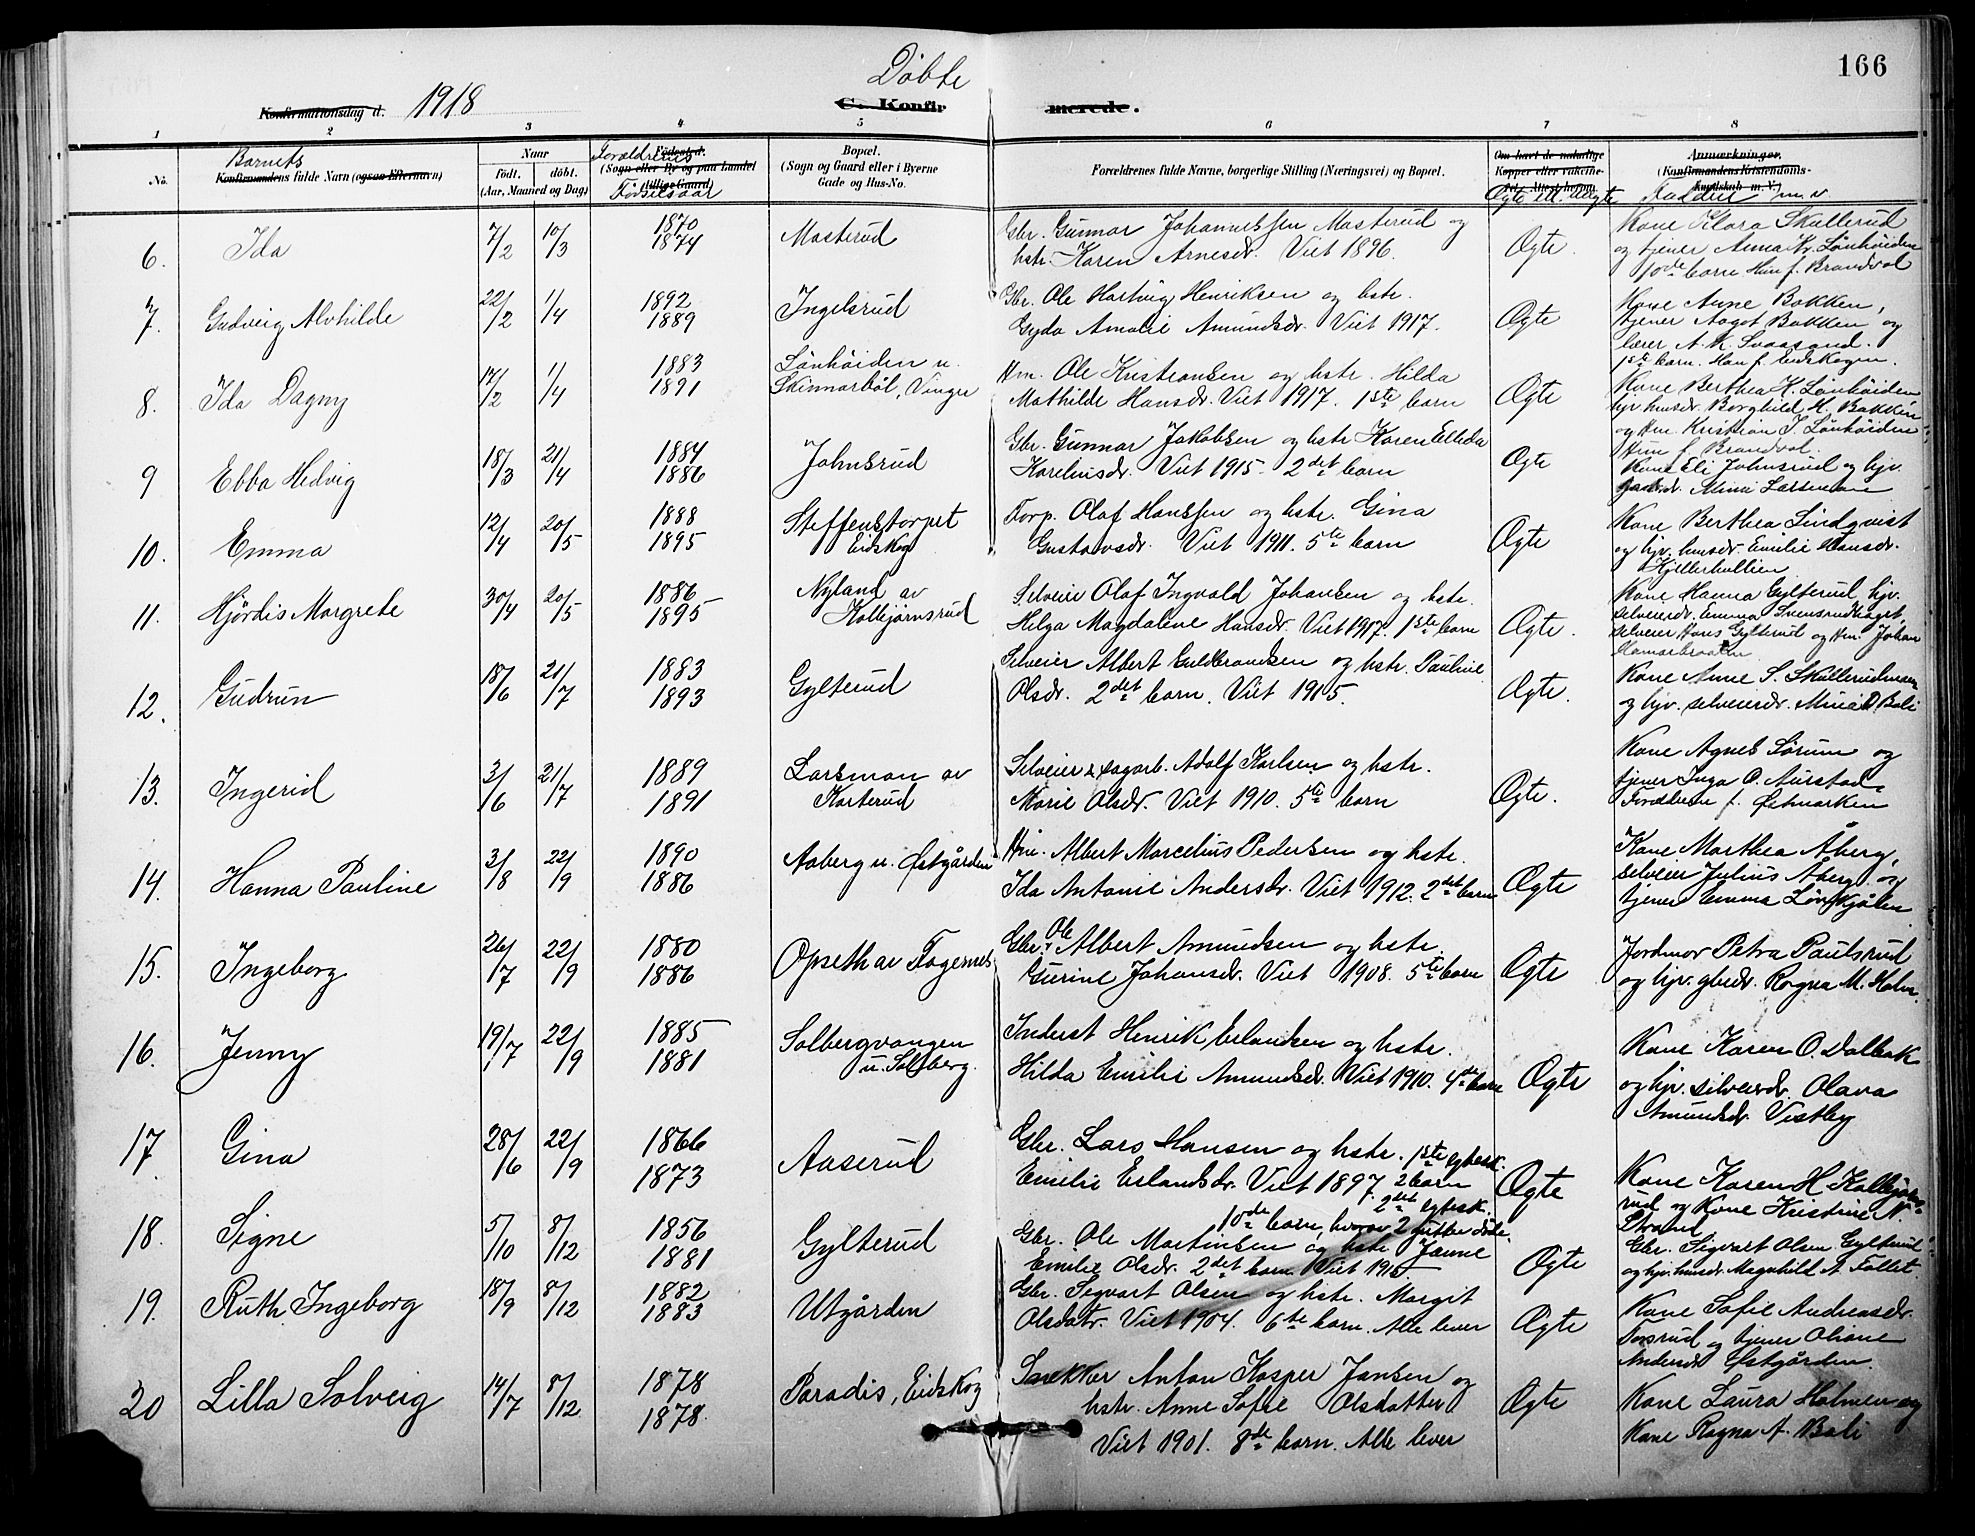 166
Döbte
Konfirmationsdag d. 1918
C. Konfirmerede.
1 2 3 4 5 6 7 8
No.
Barnets
Konfirmandens fulde Navn (ogsaa Efternavn)
Naar
født. døbt.
(Aar, Maaned og Dag)
Forældrenes
Fødested.
(Sogn eller By og paa Landet
tillige Gaard)
Fødselsaar
Bopæl.
(Sogn og Gaard eller i Byerne
Gade og Hus-No.
Forældrenes fulde Navne, borgerlige Stilling (Næringsvei) og Bopæl.
Om havt de naturlige
Kopper eller vaccine-
Ægte ell. Uægte
Anmærkninger.
(Konfirmandens Kristendoms-
Kundskab m. V.)
Faddere m. v.
6. Ida 7/2 10/3 1870 1874 Masterud
Gbr. Gunnar Johannessen Masterud og
hstr. Karen Arnesdr. Viet 1896.
Ægte.
Kone Klara Skullerud
og tjener Anna K. Lönhöiden
10de barn Hun f. Brandval
7. Gudveig Alvhilde 22/2 1/4 1892 1889 Ingelsrud
Gbr. Ole Hartvig Henriksen og hstr.
Gyda Amalie Amundsdr. Viet 1917.
Ægte
Kone Anne Bakken,
tjener Aagot Bakken og
lærer A. K. Svaasand.
1ste barn. Han f. Eidskogen.
8. Ida Dagny 17/2 1/4 1883 1891 Lönhöiden u.
Skinnarböl, Vinger
Hm. Ole Kristiansen og hstr. Hilda
Mathilde Hansdr. Viet 1917. 1ste barn
Ægte
Kone Berthea K. Lönhöiden
hjv. husdr. Borghild H. Bakken
og Hm. Kristian J. Lönhöiden
Hun f. Brandval.
9 Ebba Hedvig 18/3 21/4 1884 1886 Johnsrud
Gbr. Gunnar Jakobsen og hstr Karen Elleda
Karelinsdr. Viet 1915. 2det barn
Ægte
Kone Eli Johnsrud og hjv.
gaardr. Mimi Larsman
10. Emma 12/4 20/5 1888 1895 Steffenstorpet
Eidskog
Torp. Olaf Hanssen og hstr. Gina
Gustavsdr. Viet 1911. 5te barn
Ægte
Kone Berthea Lindqvist
og hjv. husdr. Emilie Hansdr.
11. Hjördis Margrete 30/4 20/5 1886 1895 Nyland av
Kolbjörnsrud
Selveier Olaf Ingvald Johansen og hstr.
Helga Magdalene Hansdr. Viet 1917. 1ste barn
Ægte.
Kone Hanna Gylterud, hjv.
selveierdr. Emma Svensrudhaget,
selveier Hans Gylterud og Hm. Johan
12. Gudrun 18/6 21/7 1883 1893 Gylterud
Selveier Albert Guldbrandsen og hstr. Pauline
Olsdr. 2det barn. Viet 1915.
Ægte.
Kone Anne S. Skullerudmoen
og hjv. selveierdr. Mimi D. Bali
13. Ingerid 3/6 21/7 1889 1891 Larsman av
Karterud
Selveier & sagarb. Adolf Karlsen og hstr.
Marie Olsdr. Viet 1910. 5te barn
Ægte.
Kone Agnes Sörum og
tjener Inga O. Aurstad,
Foreldrene f. Östmarken
14. Hanna Pauline 3/8 22/9 1890 1886 Aaberg u. Östgården
Hm. Albert Marcelius Pedersen og hstr.
Ida Antonie Andersdr. Viet 1912. 2det barn
Ægte
Kone Marthea Åberg,
selveier Julius Åberg og
tjener Emma Lönskjölen
15. Ingeborg 26/7 22/9 1880 1886 Opseth av Fagernes
Gbr. Ole Albert Amundsen og hstr.
Gurine Johansdr. Viet 1908. 5te barn
Ægte
Jordmor Petra Paulsrud
og hjv. gbrdr. Ragna M. Holm
16. Jenny 19/7 22/9 1885 1881 Solbergvangen
u. Solberg.
Inderst Henrik Erlandsen og hstr.
Hilda Emilie Amundsdr. Viet 1910. 4de barn
Ægte
Kone Karen O. Dalbak
og hjv. selveierdr. Olava
Amundsdr. Vestby
17. Gina 28/6 22/9 1866 1873 Aaserud
Gbr. Lars Hansen og hstr. 1ste egtesk.
Emilie Erlandsdr. Viet 1897. 2 barn
2det egtesk.
10de barn, hvorav 2 gutter döde.
Ægte
Kone Karen H. Kolbjörns-
rud og Kone Kristine N.
Strand
18. Signe 5/10 8/12 1856 1881 Gylterud
Gbr. Ole Martinsen og hstr Janne
Emilie Olsdr. 2det barn Viet 1915
Ægte
Gbr. Sigvart Olsen Gylterud
og hjv. husdr. Magnhild A. Tallet
19. Ruth Ingeborg 18/9 8/12 1882 1883 Utgården
Gbr. Segvart Olsen og hstr. Margit
Olsdatr. Viet 1904. 6te barn. Alle lever
Ægte
Kone Sofie Andreasdr.
Forsrud og tjener Oliane
Andersdr Östgården.
20 Lilla Solveig 14/7 8/12 1878 1878. Paradis, Eidskog
Snekker Anton Kasper Jansen og
hstr. Anne Sofie Olsdatter
Viet 1901. 8de barn. Alle lever
Ægte
Kone Laura Holmen og
Kone Ragna A. Bali